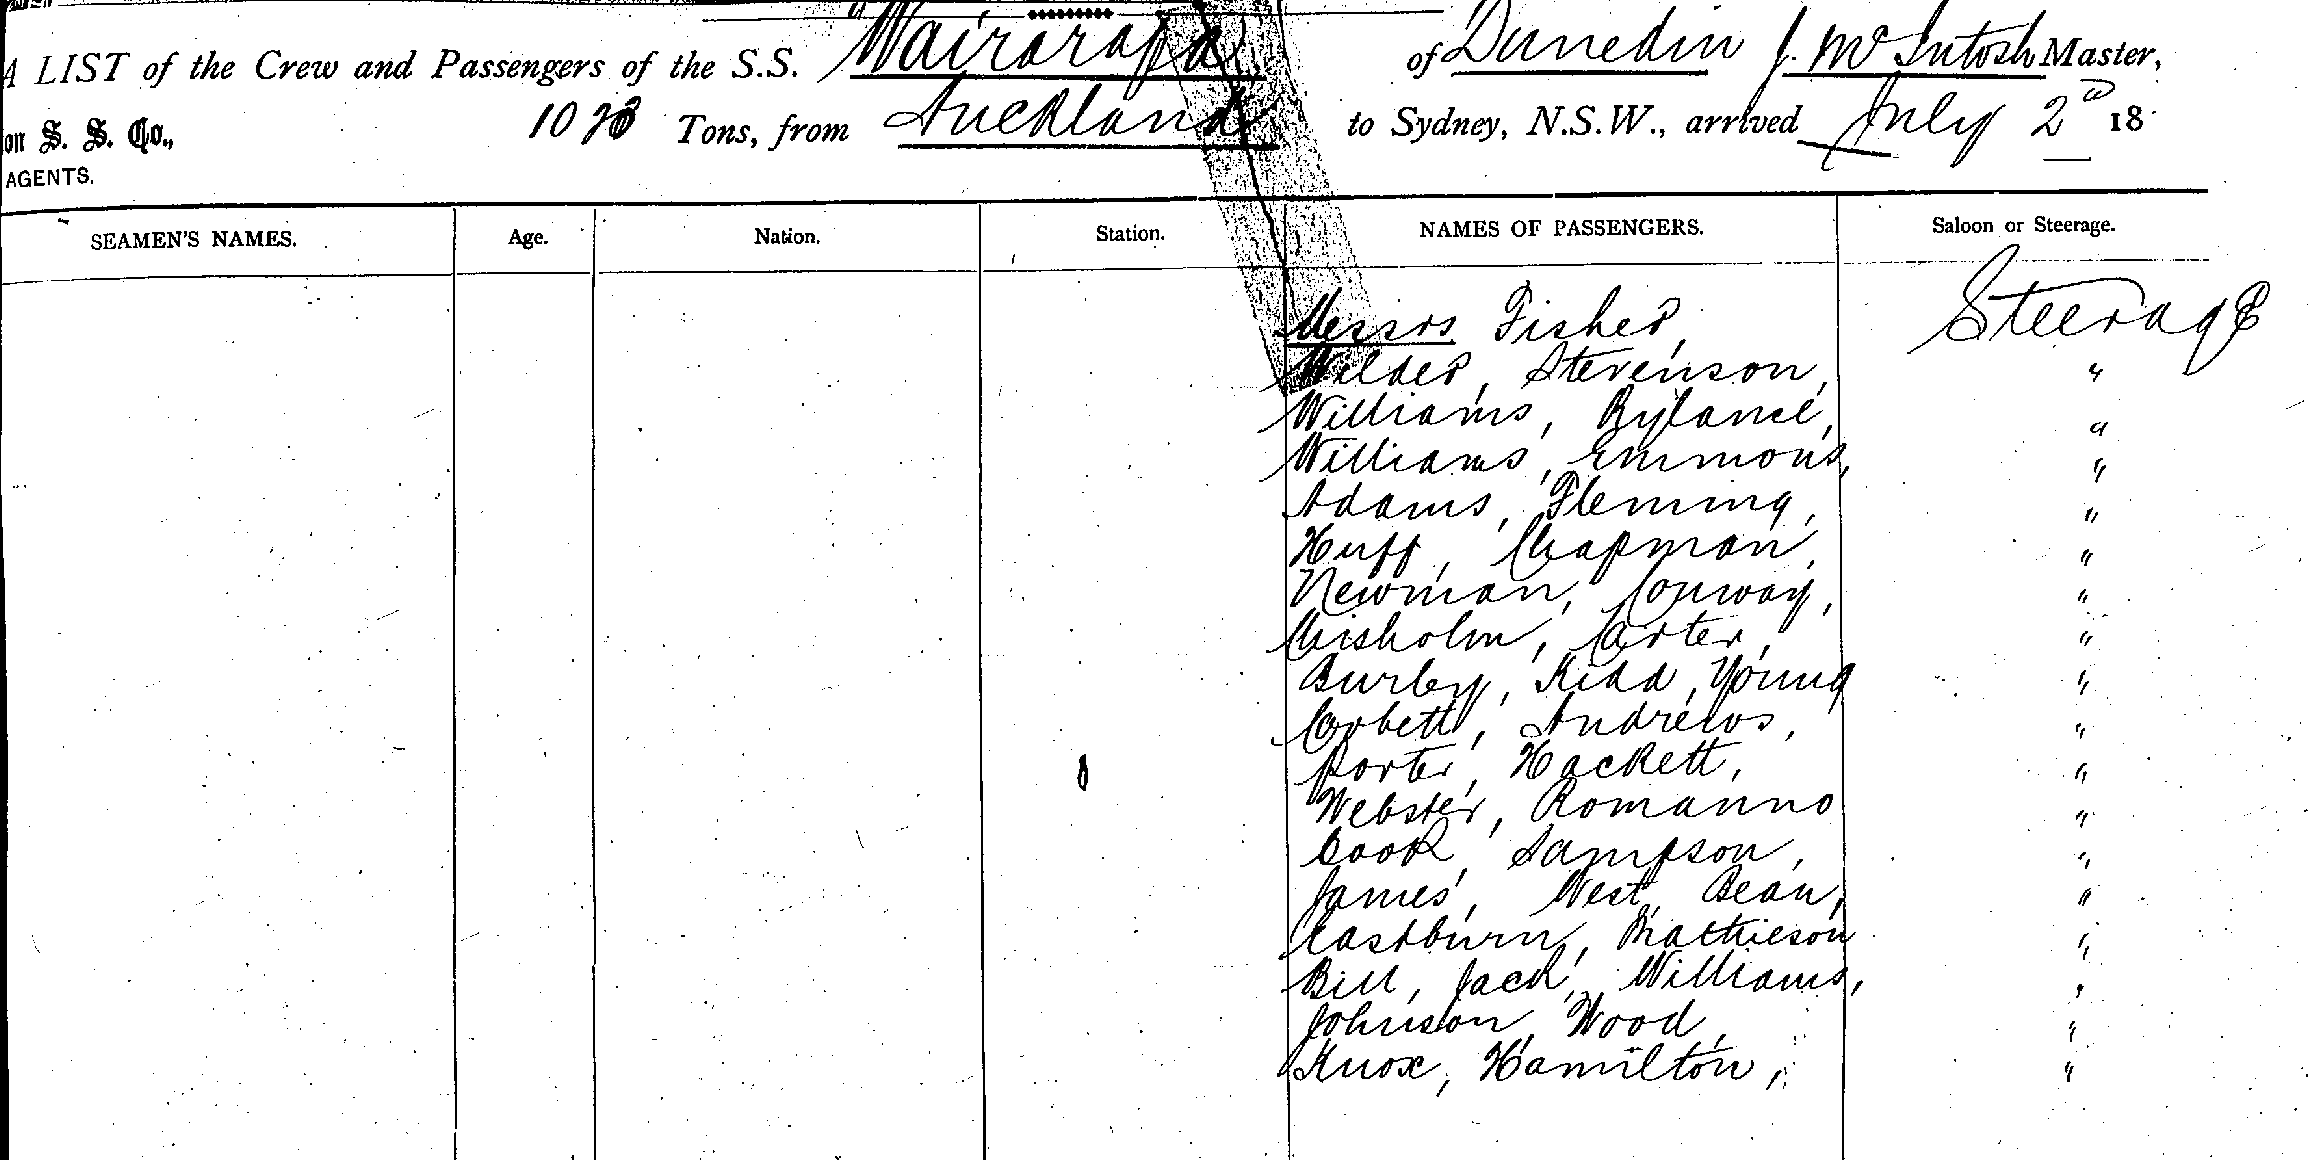 A LIST of the Crew and Passengers of the S.S. "Wairarapa of Dunedin J. McIntosh Master,
on S. S. Co., 1023 Tons, from Auckland to Sydney, N.S.W., arrived July 2d 18
AGENTS.
SEAMEN'S NAMES. Age. Nation. Station. NAMES OF PASSENGERS. Saloon or Steerage.
Messrs Fisher, Steerage
Wilder, Stevenson, "
Williams, Rylance, "
Williams, Emmons, "
Adams, Fleming, "
Huff, Chapman, "
Newman, Conway, "
Chisholm, Carter, "
Burley, Kidd, Young "
Corbett, Andrews, "
Porter, Hackett, "
Webster, Romanno "
Cook, Sampson, "
James, West, Bean, "
Eastburn, Mathieson "
Bill, Jack, Williams, "
Johnson, Wood, "
Knox, Hamilton, "